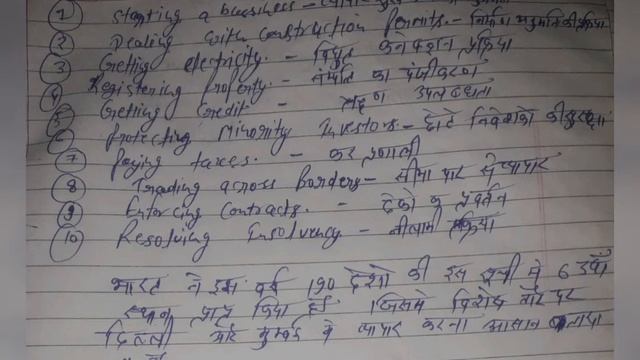 ① Starting a bussiness -
② Dealing with construction permits - निर्माण अनुमति की प्रक्रिया
③ Getting electricity. - विद्युत कनेक्शन प्रक्रिया
④ Registering Property. - संपत्ति का पंजीकरण
⑤ Getting Credit - ऋण उपलब्धता
⑥ Protecting Minority Investors - छोटे निवेशकों की सुरक्षा
⑦ Paying taxes. - कर प्रणाली
⑧ Trading across borders - सीमा पार से व्यापार
⑨ Enforcing Contracts. - ठेकों व प्रवर्तन
⑩ Resolving Insolvency -
भारत ने इस वर्ष 190 देशों की इस सूची में 63वाँ
स्थान प्राप्त किया है। जिसमें विशेष तौर पर
दिल्ली और मुम्बई में व्यापार करना आसान बताया